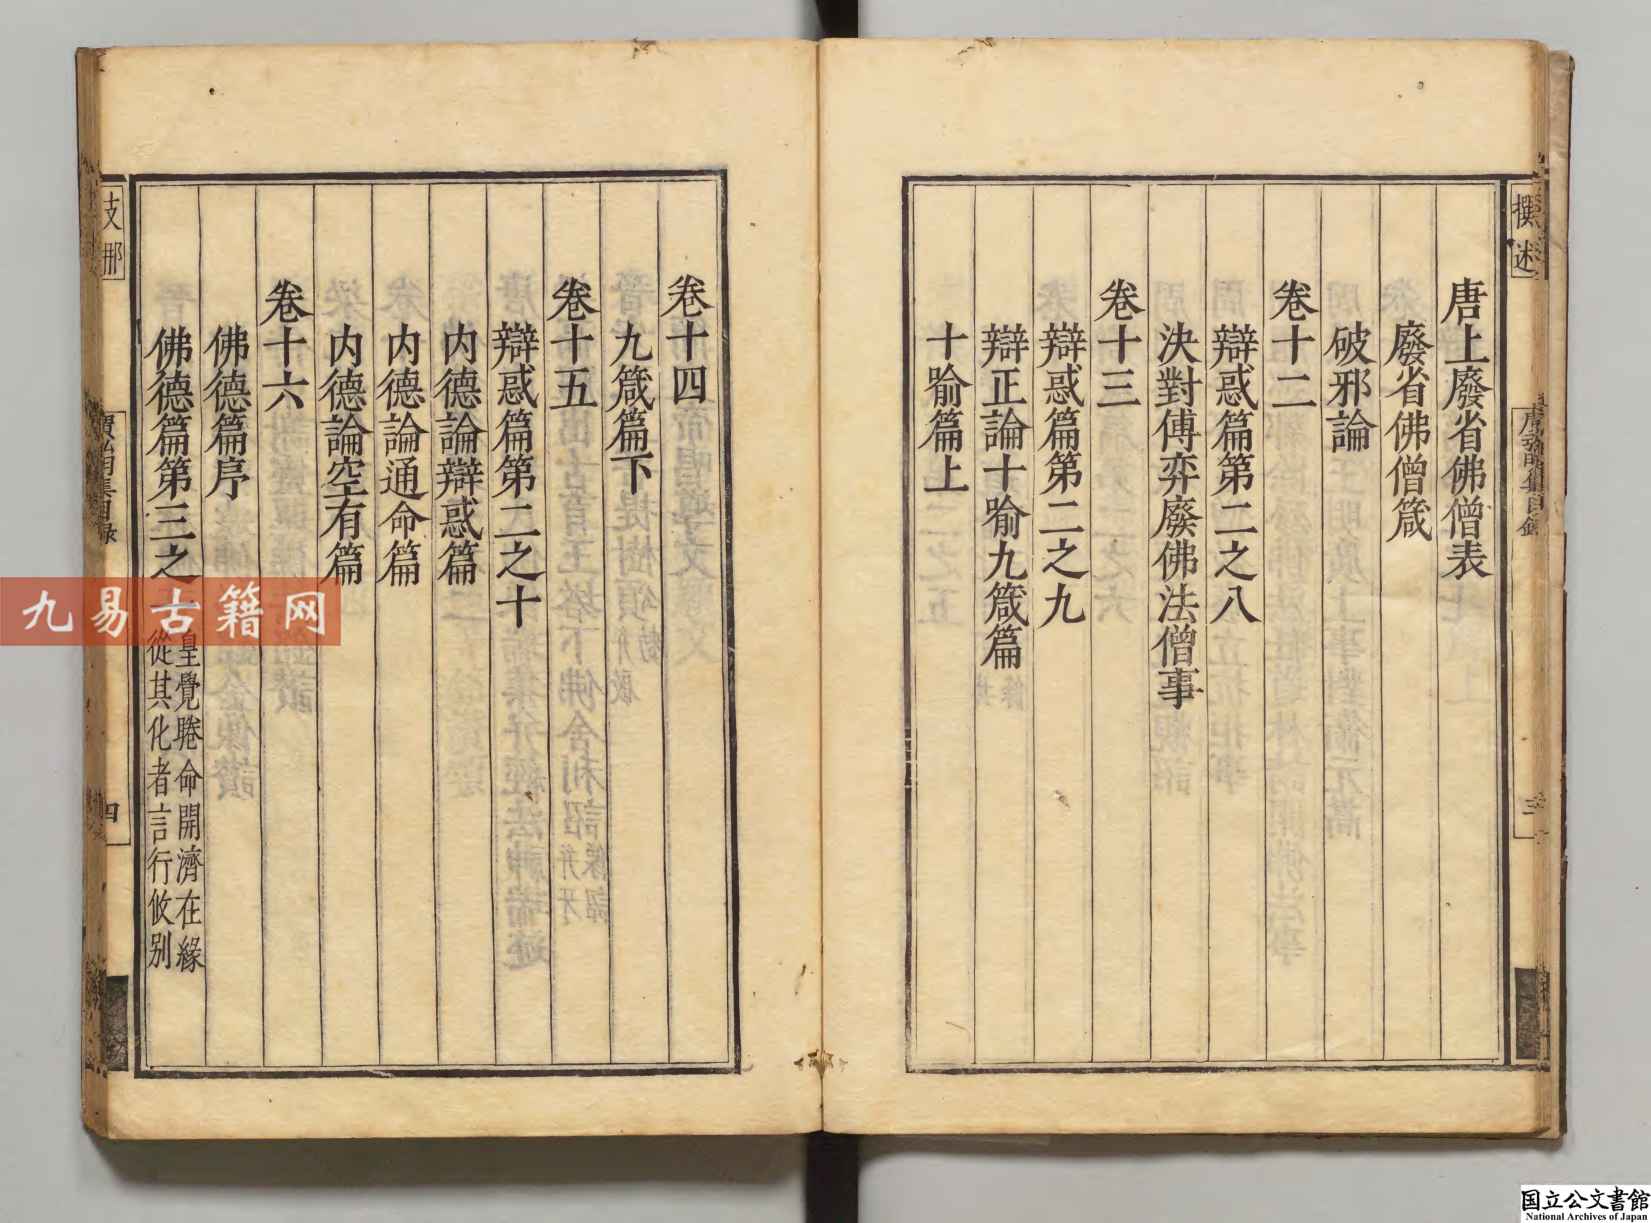 撰述
唐上廢省佛僧表
廢省佛僧箴
破邪論
卷十二
辯惑篇第二之八
決對傅弈廢佛法僧事
卷十三
辯惑篇第二之九
辯正論十喻九箴篇
十喻篇上
卷十四
九箴篇下
卷十五
辯惑篇第二之十
内德論辯惑篇
内德論通命篇
内德論空有篇
卷十六
佛德篇序
佛德篇第三之
皇覺睠命開濟在緣
從其化者言行攸别
支那
廣弘明集目録
四
九易古籍网
国立公文書館
National Archives of Japan